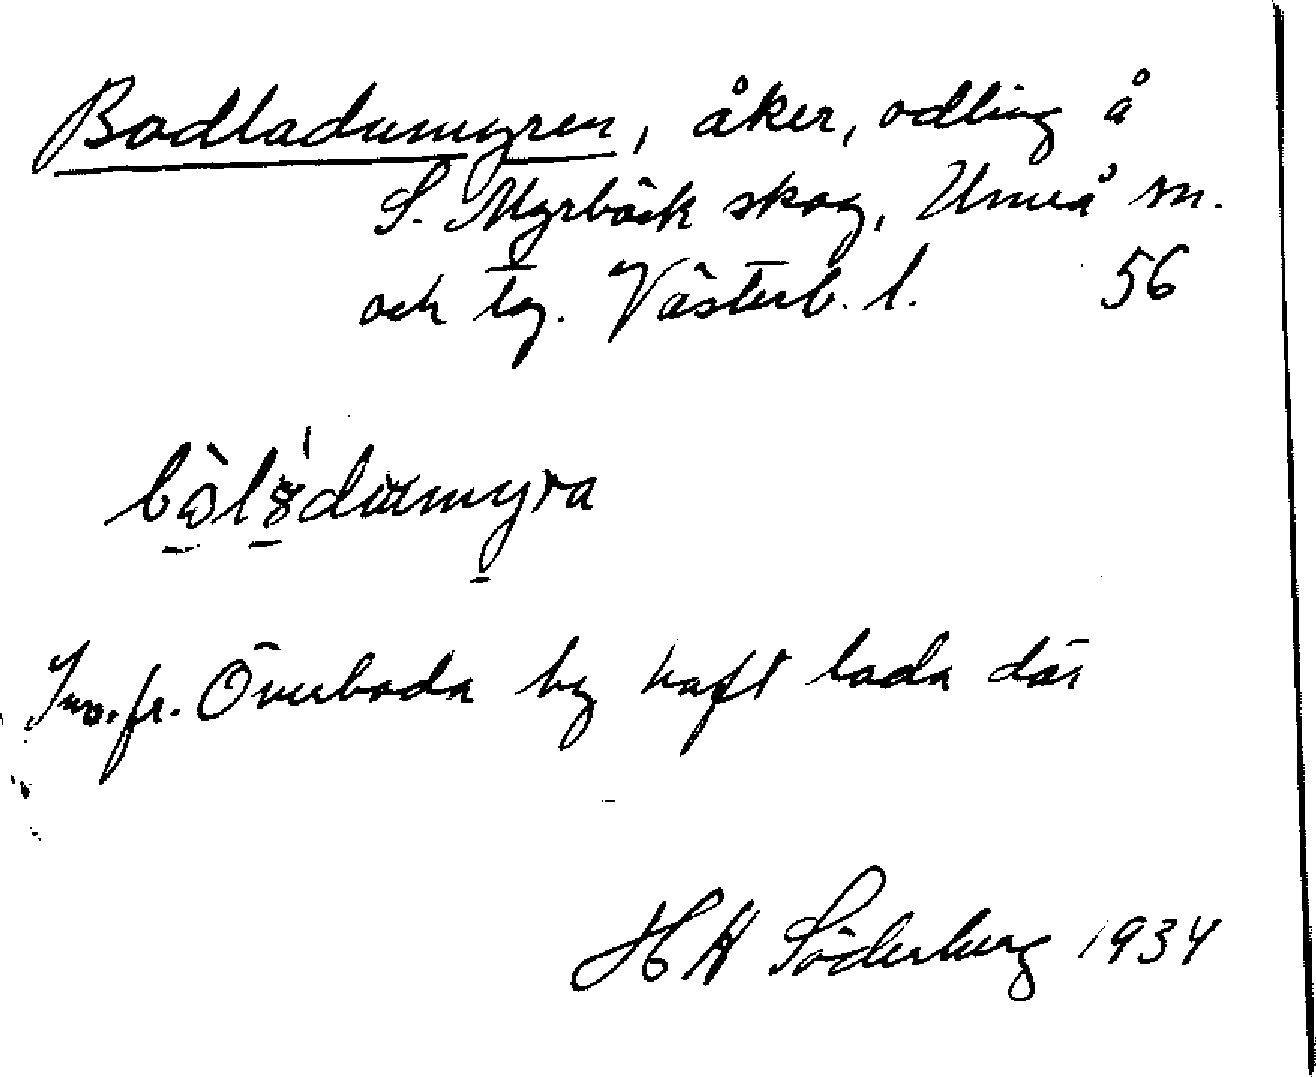 Bodladumyren, åker, odling å
S. Myrbäck skog, Umeå sn.
och tg. Västerb. l. 56
Inv. fr. Överboda by haft lada där
H H Söderberg 1934